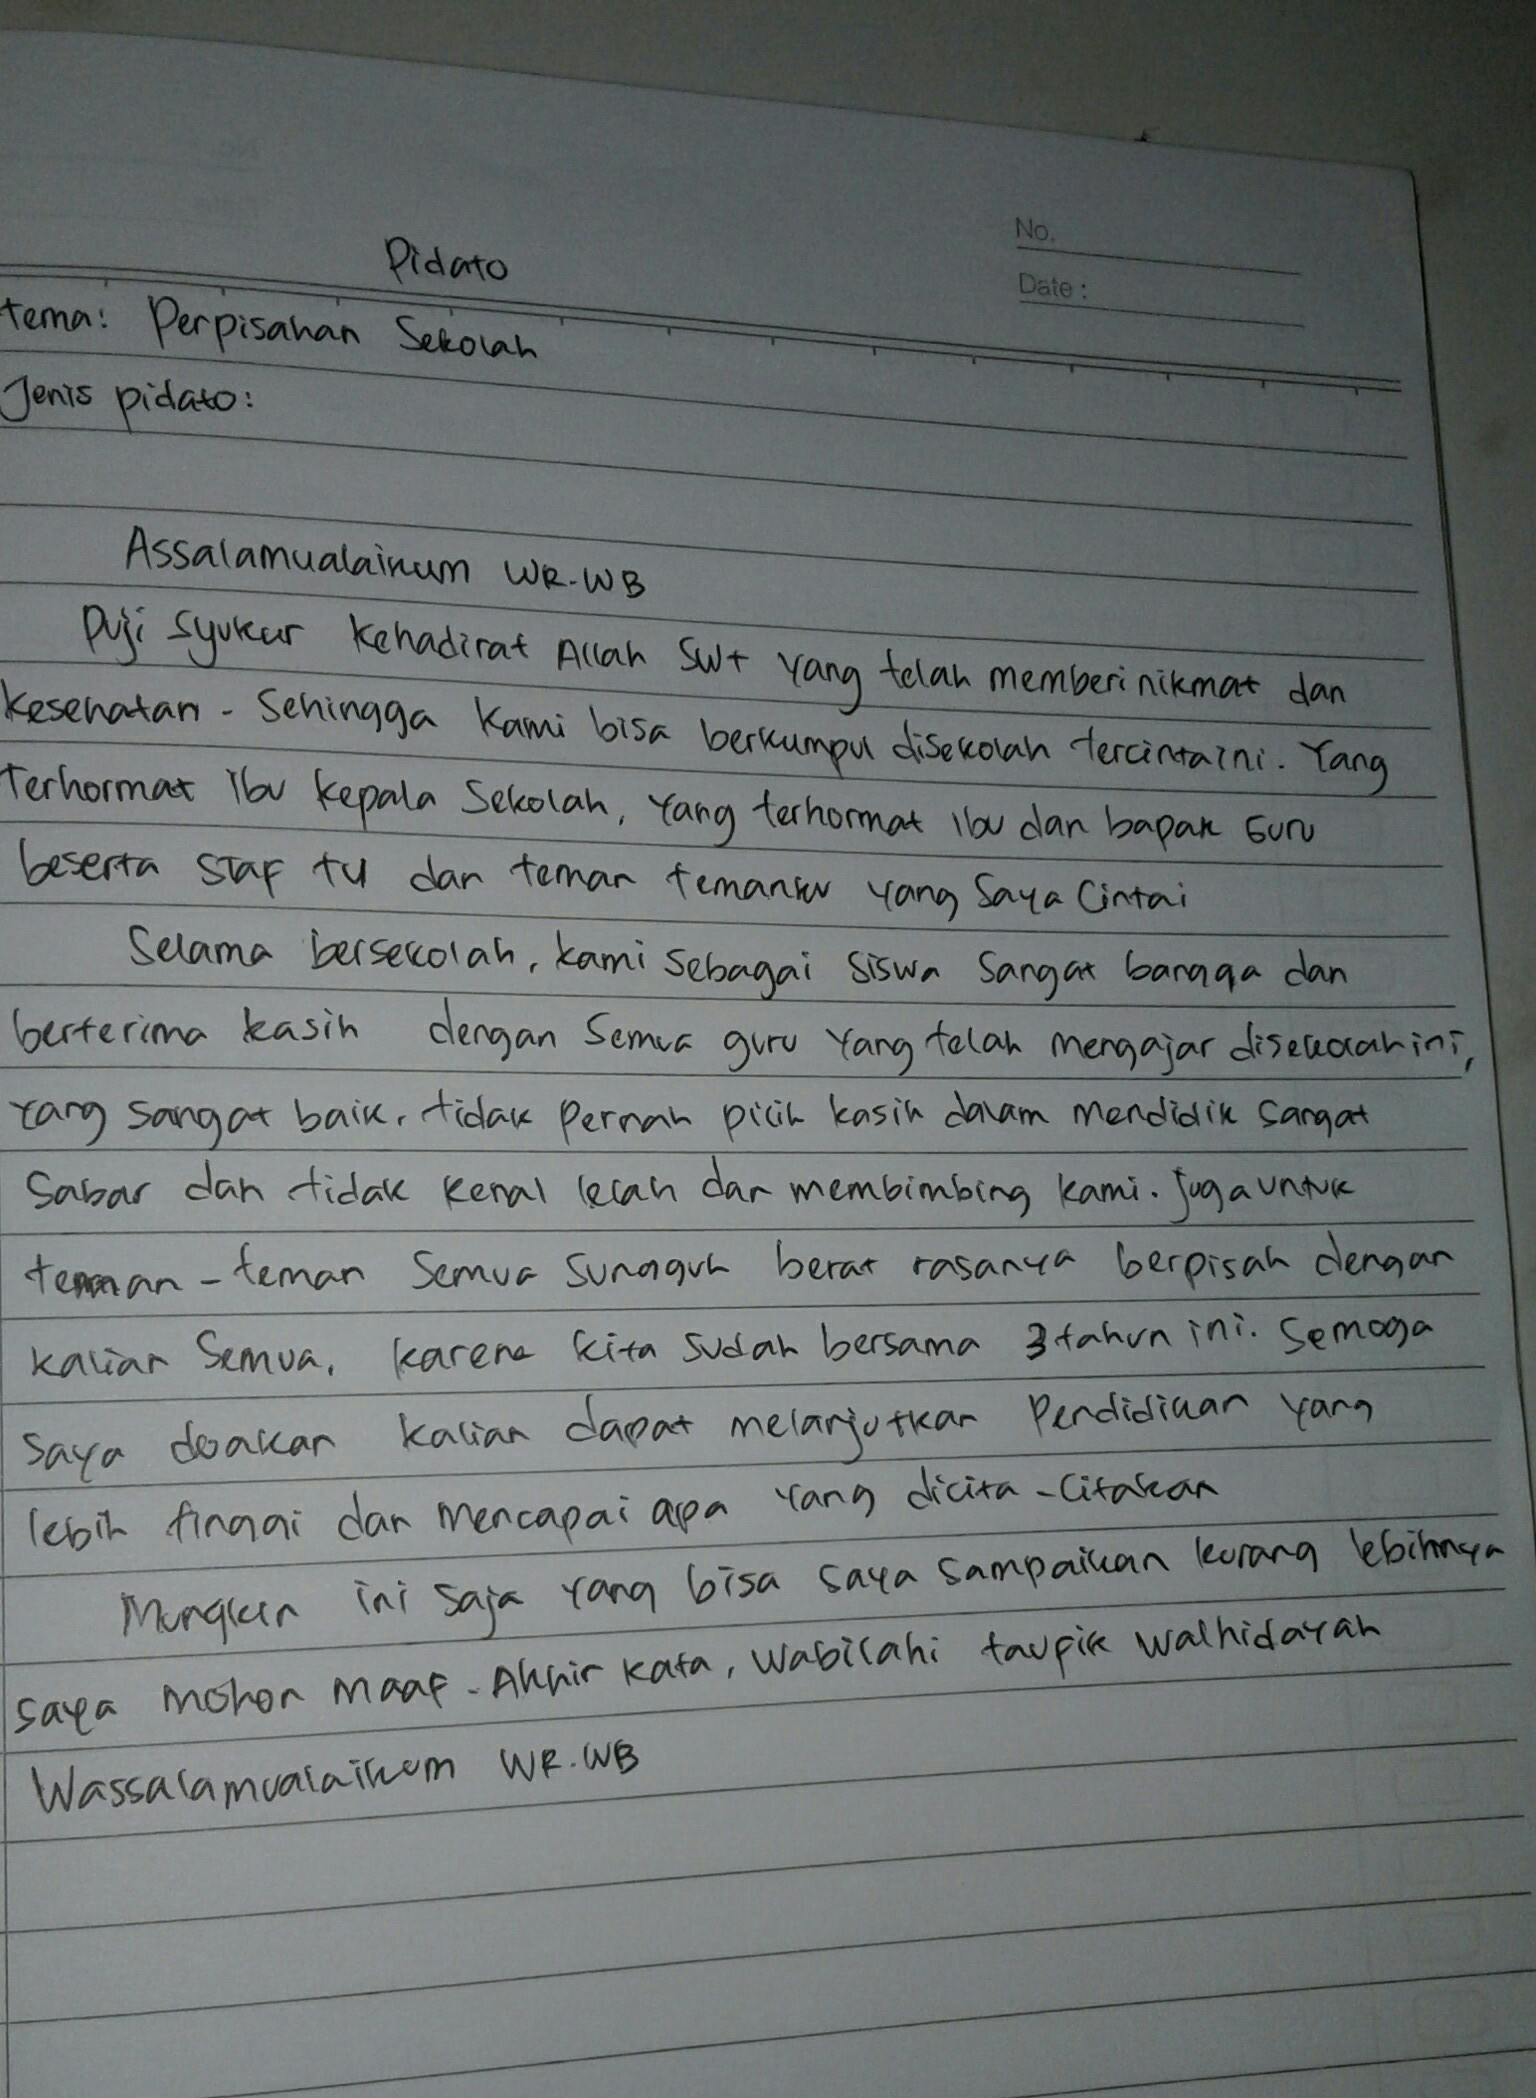 No.
Date:
Pidato
tema: Perpisahan Sekolah
Jenis pidato:
Assalamualaikum WR.WB
Puji syukur kehadirat Allah SWT yang telah memberi nikmat dan
kesehatan - Sehingga kami bisa berkumpul disekolah tercinta ini. Yang
Terhormat ibu kepala Sekolah, Yang terhormat ibu dan bapak Guru
beserta staf TU dan teman temanku yang Saya Cintai
Selama bersekolah, kami sebagai siswa Sangat bangga dan
berterima kasih dengan semua guru Yang telah mengajar disekolah ini,
Yang sangat baik, tidak Pernah pilih kasih dalam mendidik sangat
Sabar dan tidak kenal lelah dan membimbing kami. juga untuk
teman - teman Semua sungguh berat rasanya berpisah dengan
kalian Semua, karena kita sudah bersama 3 tahun ini. Semoga
saya doakan kalian dapat melanjutkan Pendidikan yang
lebih tinggi dan mencapai apa yang dicita - Citakan
Mungkin ini saja yang bisa saya sampaikan kurang lebihnya
saya mohon maaf - Akhir kata, Wabilahi taupik walhidayah
Wassalamualaikum WR.WB